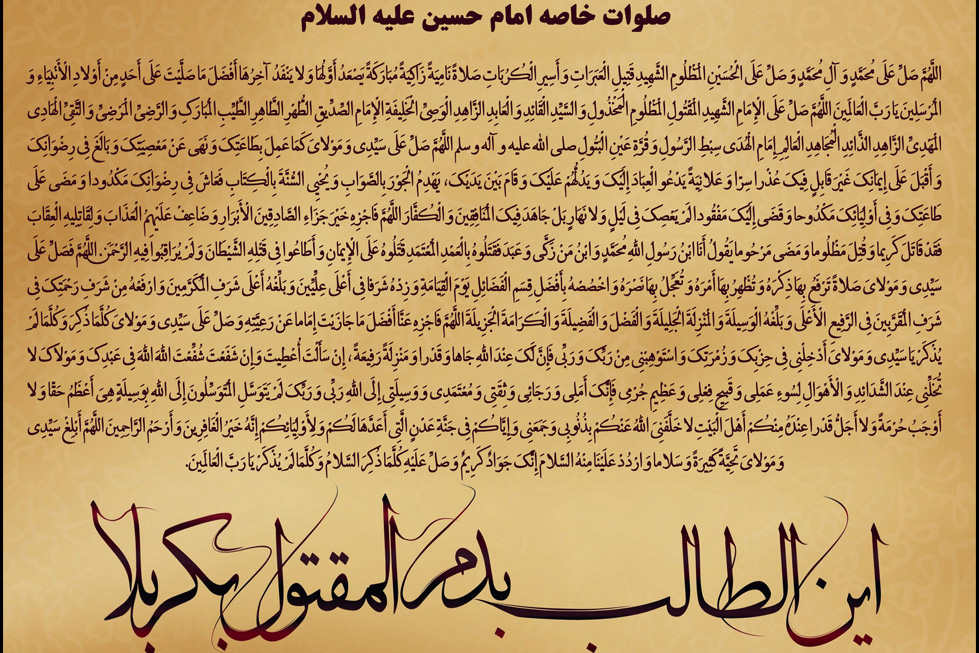 صلوات خاصه امام حسین علیه السلام
اللَّهُمَّ صَلِّ عَلَى مُحَمَّدٍ وَ آلِ مُحَمَّدٍ وَ صَلِّ عَلَى الْحُسَيْنِ الْمَظْلُومِ الشَّهِيدِ قَتِيلِ الْعَبَرَاتِ وَ أَسِيرِ الْكُرُبَاتِ صَلَاةً نَامِيَةً زَاكِيَةً مُبَارَكَةً يَصْعَدُ أَوَّلُهَا وَ لَا يَنْفَدُ آخِرُهَا أَفْضَلَ مَا صَلَّيْتَ عَلَى أَحَدٍ مِنْ أَوْلَادِ الْأَنْبِيَاءِ وَ
الْمُرْسَلِينَ يَا رَبَّ الْعَالَمِينَ اللَّهُمَّ صَلِّ عَلَى الْإِمَامِ الشَّهِيدِ الْمَقْتُولِ الْمَظْلُومِ الْمَخْذُولِ وَ السَّيِّدِ الْقَائِدِ وَ الْعَابِدِ الزَّاهِدِ الْوَصِيِّ الْخَلِيفَةِ الْإِمَامِ الصِّدِّيقِ الطُّهْرِ الطَّاهِرِ الطَّيِّبِ الْمُبَارَكِ وَ الرَّضِيِّ الْمَرْضِيِّ وَ التَّقِيِّ الْهَادِي
الْمَهْدِيِّ الزَّاهِدِ الذَّائِدِ الْمُجَاهِدِ الْعَالِمِ إِمَامِ الْهُدَى سِبْطِ الرَّسُولِ وَ قُرَّةِ عَيْنِ الْبَتُولِ صلی الله علیه و آله و سلم اللَّهُمَّ صَلِّ عَلَى سَيِّدِي وَ مَوْلَايَ كَمَا عَمِلَ بِطَاعَتِكَ وَ نَهَى عَنْ مَعْصِيَتِكَ وَ بَالَغَ فِي رِضْوَانِكَ
وَ أَقْبَلَ عَلَى إِيمَانِكَ غَيْرَ قَابِلٍ فِيكَ عُذْرا سِرّا وَ عَلَانِيَةً يَدْعُو الْعِبَادَ إِلَيْكَ وَ يَدُلُّهُمْ عَلَيْكَ وَ قَامَ بَيْنَ يَدَيْكَ، يَهْدِمُ الْجَوْرَ بِالصَّوَابِ وَ يُحْيِي السُّنَّةَ بِالْكِتَابِ فَعَاشَ فِي رِضْوَانِكَ مَكْدُودا وَ مَضَى عَلَى
طَاعَتِكَ وَ فِي أَوْلِيَائِكَ مَكْدُوحا وَ قَضَى إِلَيْكَ مَفْقُودا لَمْ يَعْصِكَ فِي لَيْلٍ وَ لَا نَهَارٍ بَلْ جَاهَدَ فِيكَ الْمُنَافِقِينَ وَ الْكُفَّارَ اللَّهُمَّ فَاجْزِهِ خَيْرَ جَزَاءِ الصَّادِقِينَ الْأَبْرَارِ وَ ضَاعِفْ عَلَيْهِمُ الْعَذَابَ وَ لِقَاتِلِيهِ الْعِقَابَ
فَقَدْ قَاتَلَ كَرِيما وَ قُتِلَ مَظْلُوما وَ مَضَى مَرْحُوما يَقُولُ أَنَا ابْنُ رَسُولِ اللهِ مُحَمَّدٍ وَ ابْنُ مَنْ زَكَّى وَ عَبَدَ فَقَتَلُوهُ بِالْعَمْدِ الْمُعْتَمَدِ قَتَلُوهُ عَلَى الْإِيمَانِ وَ أَطَاعُوا فِي قَتْلِهِ الشَّيْطَانَ وَ لَمْ يُرَاقِبُوا فِيهِ الرَّحْمَنَ. اللَّهُمَّ فَصَلِّ عَلَى
سَيِّدِي وَ مَوْلَايَ صَلَاةً تَرْفَعُ بِهَا ذِكْرَهُ وَ تُظْهِرُ بِهَا أَمْرَهُ وَ تُعَجِّلُ بِهَا نَصْرَهُ وَ اخْصُصْهُ بِأَفْضَلِ قِسَمِ الْفَضَائِلِ يَوْمَ الْقِيَامَةِ وَ زِدْهُ شَرَفا فِي أَعْلَى عِلِّيِّينَ وَ بَلِّغْهُ أَعْلَى شَرَفِ الْمُكَرَّمِينَ وَ ارْفَعْهُ مِنْ شَرَفِ رَحْمَتِكَ فِي
شَرَفِ الْمُقَرَّبِينَ فِي الرَّفِيعِ الْأَعْلَى وَ بَلِّغْهُ الْوَسِيلَةَ وَ الْمَنْزِلَةَ الْجَلِيلَةَ وَ الْفَضْلَ وَ الْفَضِيلَةَ وَ الْكَرَامَةَ الْجَزِيلَةَ اللَّهُمَّ فَاجْزِهِ عَنَّا أَفْضَلَ مَا جَازَيْتَ إِمَاما عَنْ رَعِيَّتِهِ وَ صَلِّ عَلَى سَيِّدِي وَ مَوْلَايَ كُلَّمَا ذُكِرَ وَ كُلَّمَا لَمْ
يُذْكَرْ يَا سَيِّدِي وَ مَوْلَايَ أَدْخِلْنِي فِي حِزْبِكَ وَ زُمْرَتِكَ وَ اسْتَوْهِبْنِي مِنْ رَبِّكَ وَ رَبِّي فَإِنَّ لَكَ عِنْدَ اللهِ جَاها وَ قَدْرا وَ مَنْزِلَةً رَفِيعَةً، إِنْ سَأَلْتَ أُعْطِيتَ وَ إِنْ شَفَعْتَ شُفِّعْتَ اللهَ اللهَ فِي عَبْدِكَ وَ مَوْلَاكَ لَا
تُخَلِّنِي عِنْدَ الشَّدَائِدِ وَ الْأَهْوَالِ لِسُوءِ عَمَلِي وَ قَبِيحِ فِعْلِي وَ عَظِيمِ جُرْمِي فَإِنَّكَ أَمَلِي وَ رَجَائِي وَ ثِقَتِي وَ مُعْتَمَدِي وَ وَسِيلَتِي إِلَى اللهِ رَبِّي وَ رَبِّكَ لَمْ يَتَوَسَّلِ الْمُتَوَسِّلُونَ إِلَى اللهِ بِوَسِيلَةٍ هِيَ أَعْظَمُ حَقّا وَ لَا
أَوْجَبُ حُرْمَةً وَ لَا أَجَلُّ قَدْرا عِنْدَهُ مِنْكُمْ أَهْلَ الْبَيْتِ لَا خَلَّفَنِيَ اللهُ عَنْكُمْ بِذُنُوبِي وَ جَمَعَنِي وَ إِيَّاكُمْ فِي جَنَّةِ عَدْنٍ الَّتِي أَعَدَّهَا لَكُمْ وَ لِأَوْلِيَائِكُمْ إِنَّهُ خَيْرُ الْغَافِرِينَ وَ أَرْحَمُ الرَّاحِمِينَ اللَّهُمَّ أَبْلِغْ سَيِّدِي
وَ مَوْلَايَ تَحِيَّةً كَثِيرَةً وَ سَلَاما وَ ارْدُدْ عَلَيْنَا مِنْهُ السَّلَامَ إِنَّكَ جَوَادٌ كَرِيمٌ وَ صَلِّ عَلَيْهِ كُلَّمَا ذُكِرَ السَّلَامُ وَ كُلَّمَا لَمْ يُذْكَرْ يَا رَبَّ الْعَالَمِينَ.
این الطالب بدم المقتول بکربلا